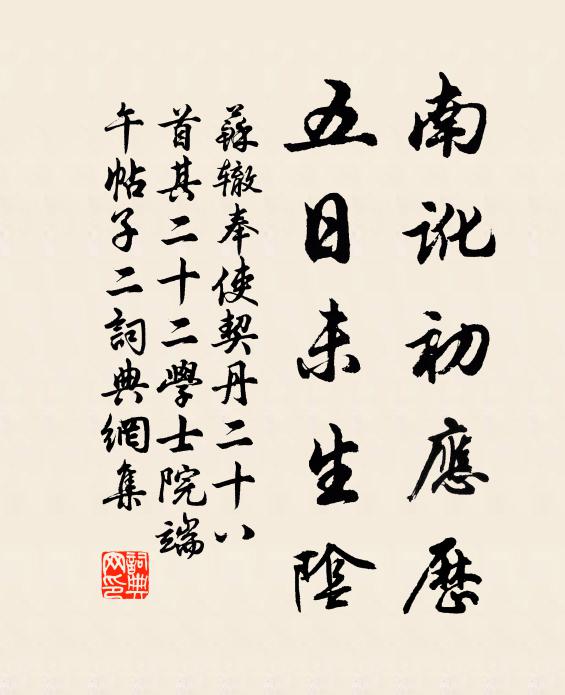 南訛初應歷
五日未生陰
蘇辙奉使契丹二十八
首其二十二學士院端
午帖子二詞典網集
詞典网印